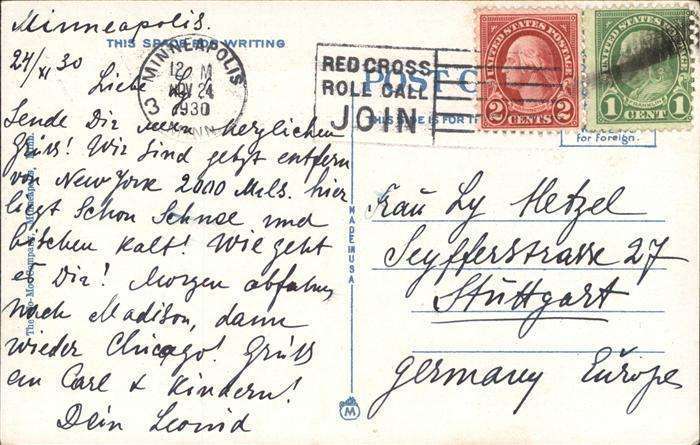 Minneapolis.
THIS SPACE FOR WRITING
24/XI 30
Liebe Ly
Sende Dir mein herzlichen
Grüss! Wir sind jetzt entfern
von New York 2000 Mls. hier
liegt Schon Schnee und
bischen Kalt! Wie geht
es Dir! Morgen abfahren
nach Madison, dann
wieder Chicago! Grüss
an Carl & Kindern!
Dein Leonid
MINNEAPOLIS
12 M
NOV 24
1930
MINN.
3
RED CROSS
ROLL CALL
JOIN
POST C
THIS SIDE IS FOR TH
UNITED STATES POSTAGE
2 CENTS 2
UNITED STATES POSTAGE
FRANKLIN
1 CENT 1
for Foreign.
Frau Ly Hetzel
Seyfferstrasse 27
Stuttgart
Germany Europe
MADE IN USA
M
Company, Minneapolis, Minn.